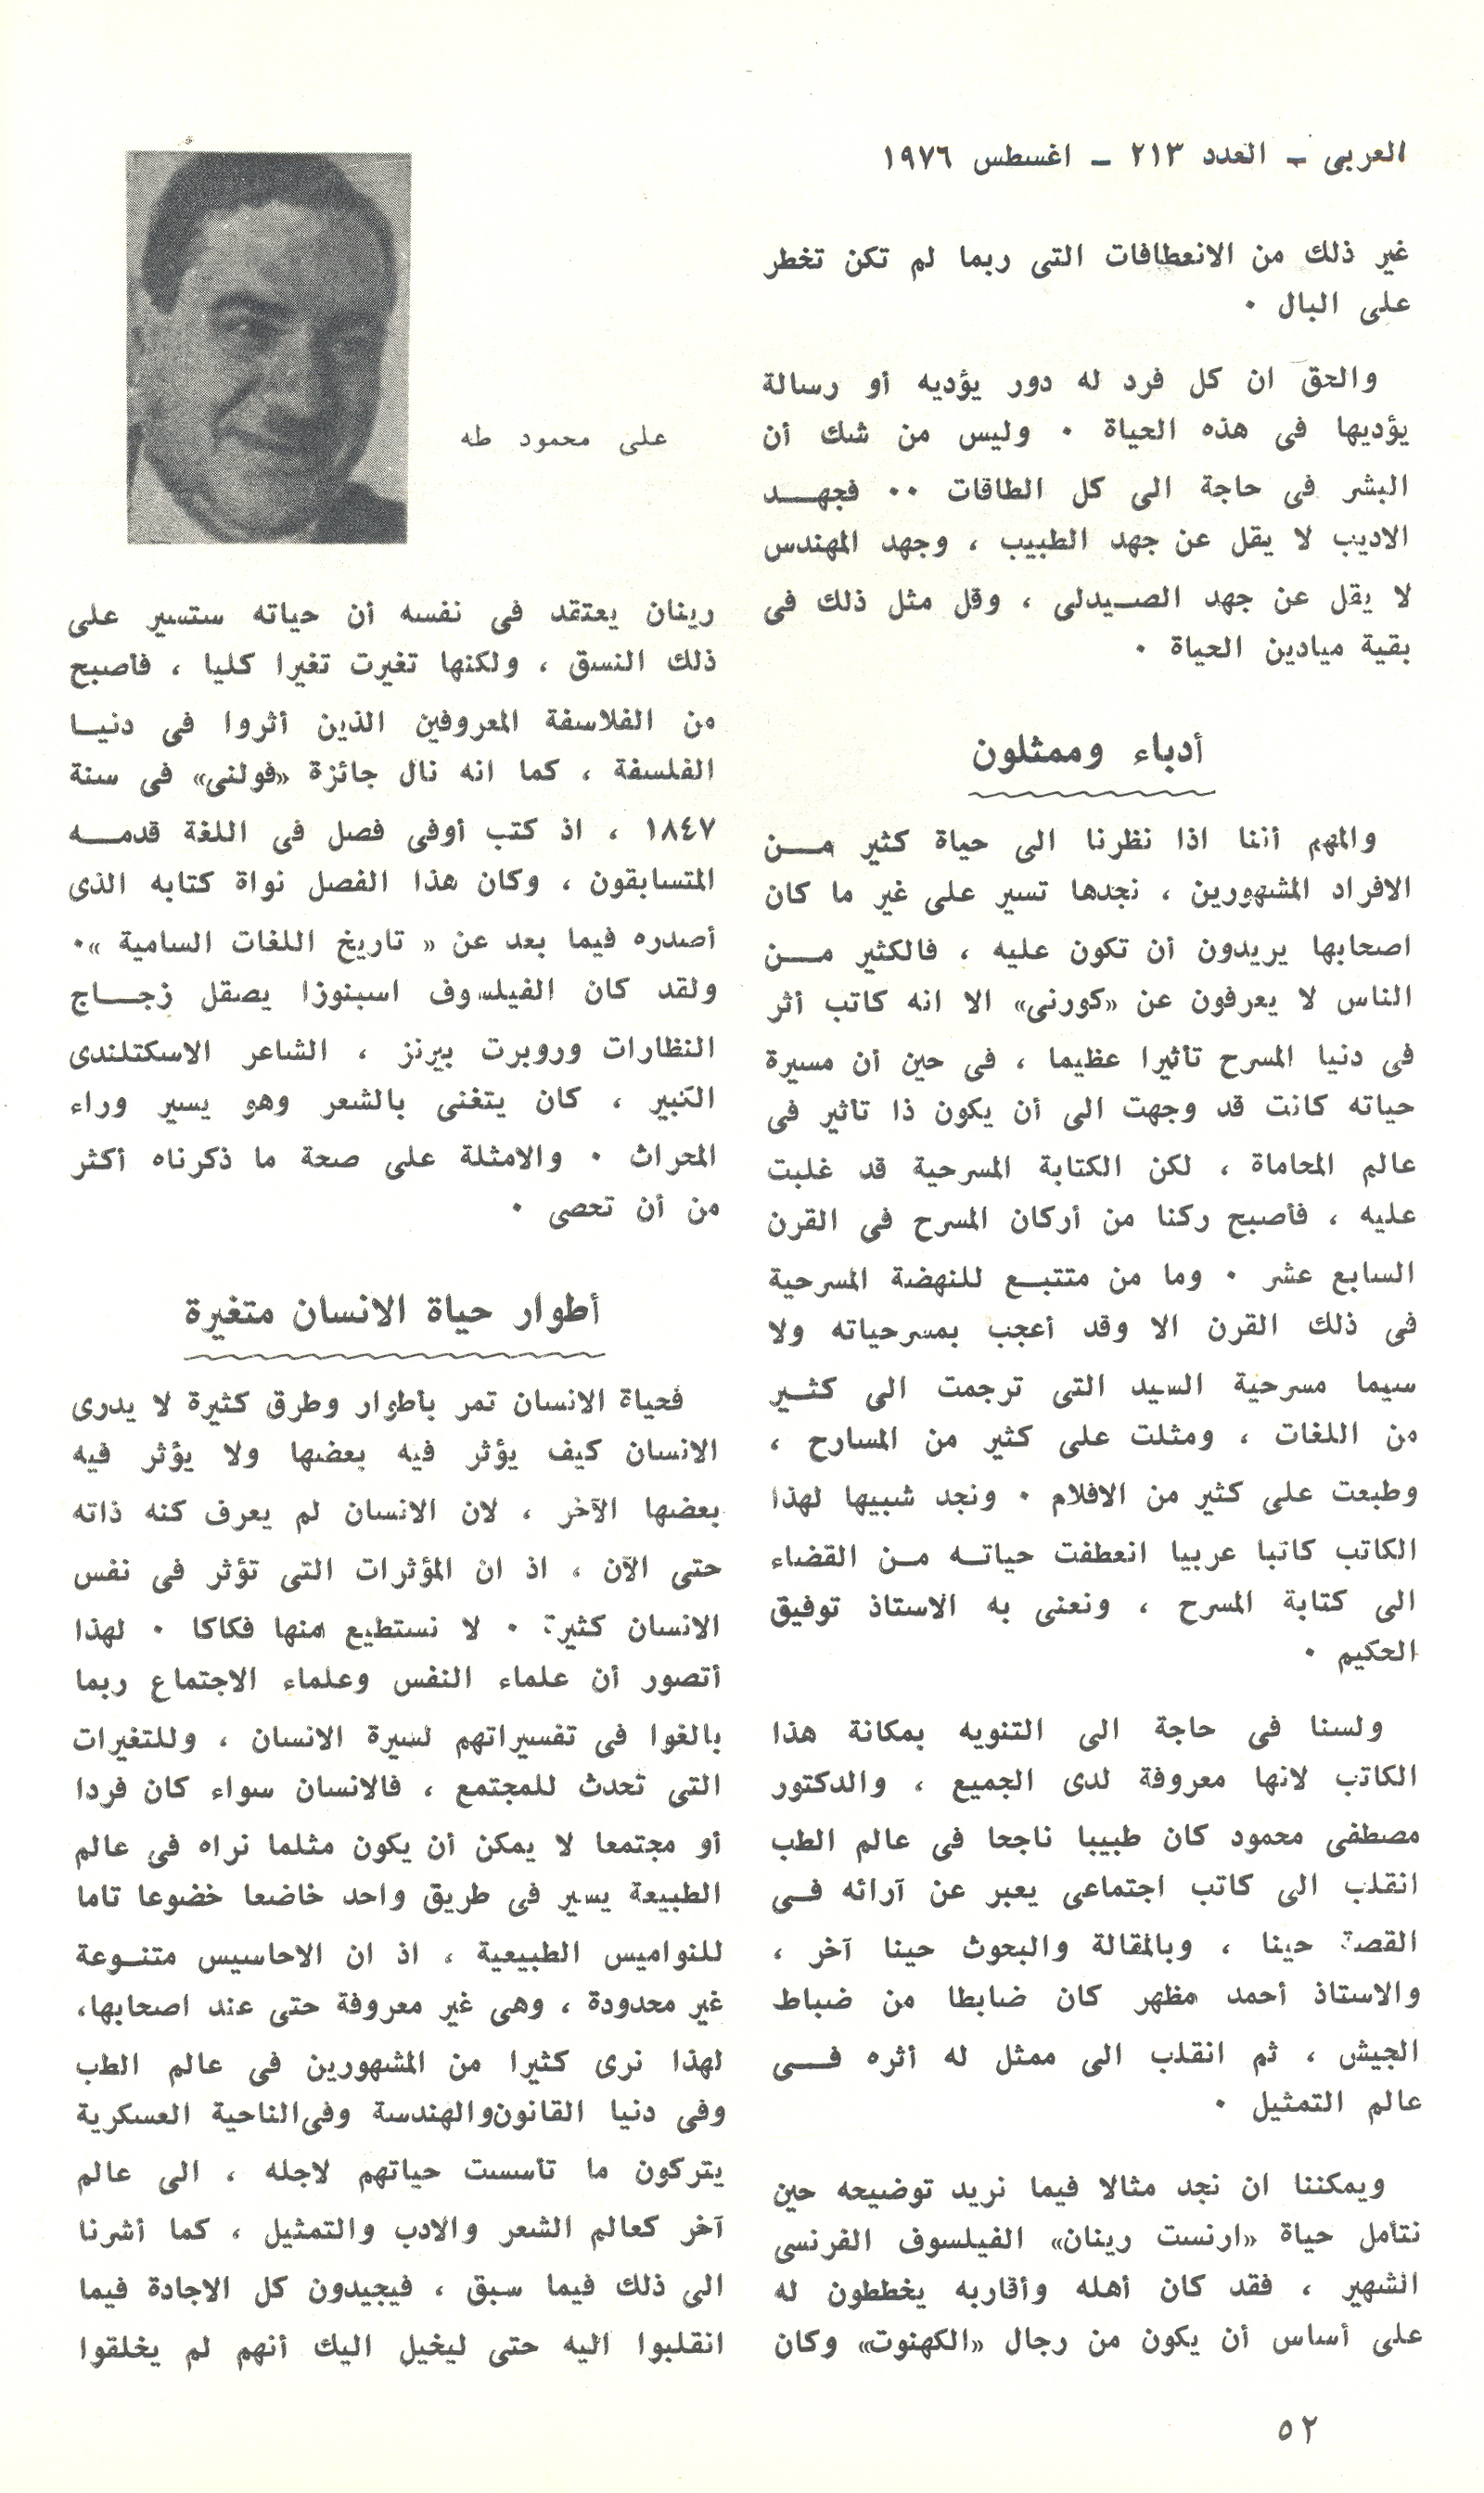 العربى ـ العدد ٢١٣ ـ اغسطس ١٩٧٦
غير ذلك من الانعطافات التى ربما لم تكن تخطر
على البال ٠
والحق ان كل فرد له دور يؤديه أو رسالة
يؤديها فى هذه الحياة ٠ وليس من شك أن
البشر فى حاجة الى كل الطاقات ٠٠ فجهـــد
الاديب لا يقل عن جهد الطبيب ، وجهد المهندس
لا يقل عن جهد الصـيدلى ، وقل مثل ذلك فى
بقية ميادين الحياة ٠
أدباء وممثلون
والمهم أننا اذا نظرنا الى حياة كثير مـــن
الافراد المشهورين ، نجدها تسير على غير ما كان
اصحابها يريدون أن تكون عليه ، فالكثير مـــن
الناس لا يعرفون عن «كورنى» الا انه كاتب أثر
فى دنيا المسرح تأثيرا عظيما ، فى حين أن مسيرة
حياته كانت قد وجهت الى أن يكون ذا تأثير فى
عالم المحاماة ، لكن الكتابة المسرحية قد غلبت
عليه ، فأصبح ركنا من أركان المسرح فى القرن
السابع عشر ٠ وما من متتبـع للنهضة المسرحية
فى ذلك القرن الا وقد أعجب بمسرحياته ولا
سيما مسرحية السيد التى ترجمت الى كثـير
من اللغات ، ومثلت على كثير من المسارح ،
وطبعت على كثير من الافلام ٠ ونجد شبيها لهذا
الكاتب كاتبا عربيا انعطفت حياتـه مـن القضاء
الى كتابة المسرح ، ونعنى به الاستاذ توفيق
الحكيم ٠
ولسنا فى حاجة الى التنويه بمكانة هذا
الكاتب لانها معروفة لدى الجميع ، والدكتور
مصطفى محمود كان طبيبا ناجحا فى عالم الطب
انقلب الى كاتب اجتماعى يعبر عن آرائه فـى
القصة حينا ، وبالمقالة والبحوث حينا آخر ،
والاستاذ أحمد مظهر كان ضابطا من ضباط
الجيش ، ثم انقلب الى ممثل له أثره فـــى
عالم التمثيل ٠
ويمكننا ان نجد مثالا فيما نريد توضيحه حين
نتأمل حياة «ارنست رينان» الفيلسوف الفرنسى
الشهير ، فقد كان أهله وأقاربه يخططون له
على أساس أن يكون من رجال «الكهنوت» وكان
على محمود طه
رينان يعتقد فى نفسه أن حياته ستسير على
ذلك النسق ، ولكنها تغيرت تغيرا كليا ، فأصبح
من الفلاسفة المعروفين الذين أثروا فى دنيـا
الفلسفة ، كما انه نال جائزة «فولنى» فى سنة
١٨٤٧ ، اذ كتب أوفى فصل فى اللغة قدمـــه
المتسابقون ، وكان هذا الفصل نواة كتابه الذى
أصدره فيما بعد عن « تاريخ اللغات السامية »٠
ولقد كان الفيلسوف اسبنوزا يصقل زجـــاج
النظارات وروبرت بيرنز ، الشاعر الاسكتلندى
الكبير ، كان يتغنى بالشعر وهو يسير وراء
المحراث ٠ والامثلة على صحة ما ذكرناه أكثر
من أن تحصى ٠
أطوار حياة الانسان متغيرة
فحياة الانسان تمر بأطوار وطرق كثيرة لا يدرى
الانسان كيف يؤثر فيه بعضها ولا يؤثر فيه
بعضها الآخر ، لان الانسان لم يعرف كنه ذاته
حتى الآن ، اذ ان المؤثرات التى تؤثر فى نفس
الانسان كثيرة ٠ لا نستطيع منها فكاكا ٠ لهذا
أتصور أن علماء النفس وعلماء الاجتماع ربما
بالغوا فى تفسيراتهم لسيرة الانسان ، وللتغيرات
التى تحدث للمجتمع ، فالانسان سواء كان فردا
أو مجتمعا لا يمكن أن يكون مثلما نراه فى عالم
الطبيعة يسير فى طريق واحد خاضعا خضوعا تاما
للنواميس الطبيعية ، اذ ان الاحاسيس متنـوعة
غير محدودة ، وهى غير معروفة حتى عند اصحابها،
لهذا نرى كثيرا من المشهورين فى عالم الطب
وفى دنيا القانون والهندسة وفى الناحية العسكرية
يتركون ما تأسست حياتهم لاجله ، الى عالم
آخر كعالم الشعر والادب والتمثيل ، كما أشرنا
الى ذلك فيما سبق ، فيجيدون كل الاجادة فيما
انقلبوا اليه حتى ليخيل اليك أنهم لم يخلقوا
٥٢